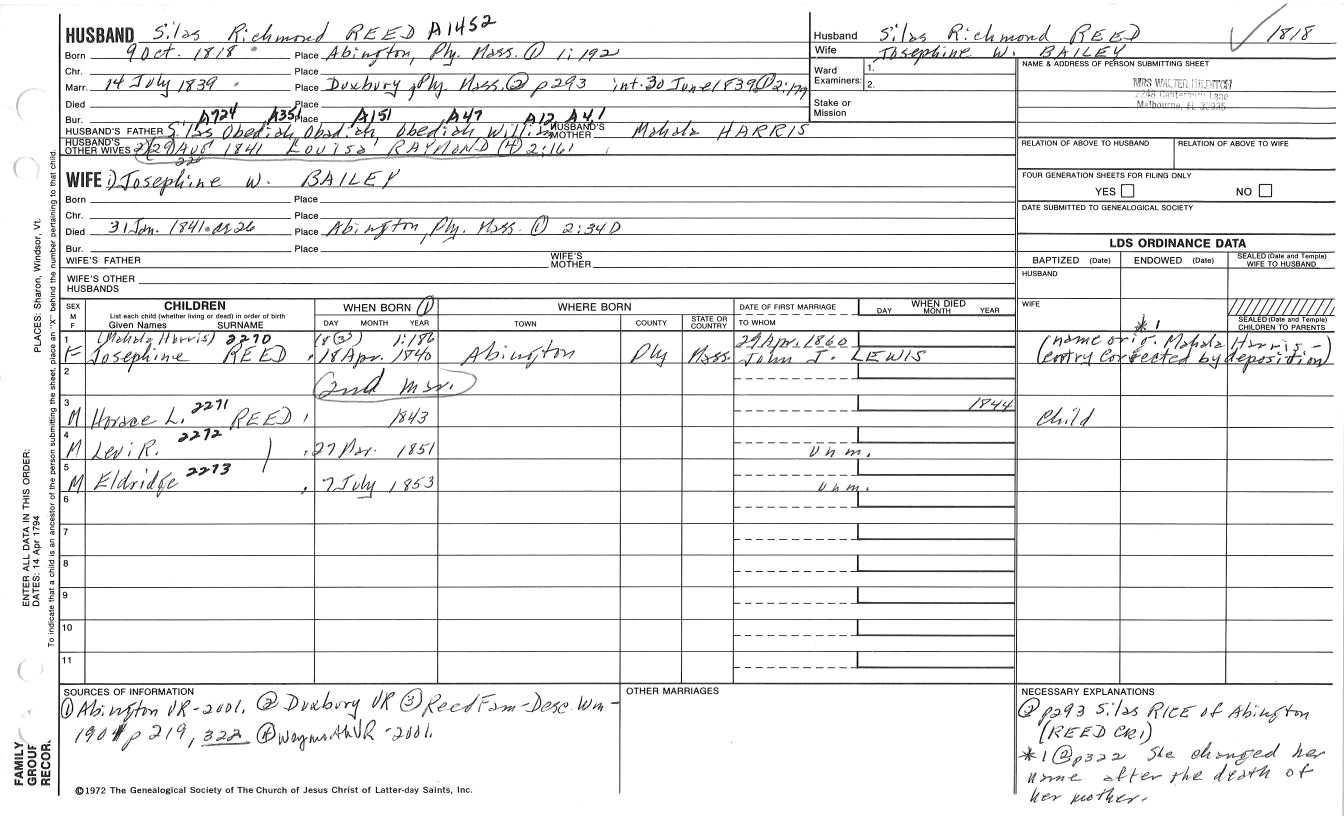 HUSBAND Silas Richmond REED A1452
Born 9 Oct. 1818 Place Abington, Ply. Mass. ① 1:192
Chr. Place
Marr. 14 July 1839 Place Duxbury, Ply. Mass. ② p293 int. 30 June 1839 ① 2:179
Died Place
Bur. A724 A351 Place A151 A47 A12 A41
HUSBAND'S FATHER Silas, Obediah, Obadiah, Obediah, William HUSBAND'S MOTHER Mahala HARRIS
HUSBAND'S OTHER WIVES 2) 29 Aug 1841 Louisa RAYMOND (4) 2:161
226
WIFE 1) Josephine W. BAILEY
Born Place
Chr. Place
Died 31 Jan. 1841 ae 26 Place Abington, Ply. Mass. ① 2:340
Bur. Place
WIFE'S FATHER WIFE'S MOTHER
WIFE'S OTHER HUSBANDS
Husband Silas Richmond REED 1818
Wife Josephine W. BAILEY
Ward 1.
Examiners: 2.
Stake or Mission
NAME & ADDRESS OF PERSON SUBMITTING SHEET
MRS WALTER
Melbourne, FL 32935
RELATION OF ABOVE TO HUSBAND RELATION OF ABOVE TO WIFE
FOUR GENERATION SHEETS FOR FILING ONLY
YES NO
DATE SUBMITTED TO GENEALOGICAL SOCIETY
LDS ORDINANCE DATA
BAPTIZED (Date) ENDOWED (Date) SEALED (Date and Temple) WIFE TO HUSBAND
HUSBAND
WIFE
SEALED (Date and Temple) CHILDREN TO PARENTS
SEX M F CHILDREN WHEN BORN ① WHERE BORN DATE OF FIRST MARRIAGE WHEN DIED
List each child (whether living or dead) in order of birth
Given Names SURNAME DAY MONTH YEAR TOWN COUNTY STATE OR COUNTRY TO WHOM DAY MONTH YEAR
1 (Mahala Harris) 2270 (8 ③) 1:186 29 Apr. 1860 *1 (name orig. Mahala Harris -
F Josephine REED 18 Apr. 1840 Abington Ply Mass. John J. LEWIS entry corrected by deposition)
2 (2nd mar.)
3 2271 1844
M Horace L. REED 1843 Child
4 2272
M Levi R. 27 Mar. 1851 Unm.
5 2273
M Eldridge 7 July 1853 Unm.
6
7
8
9
10
11
SOURCES OF INFORMATION
① Abington VR-2001. ② Duxbury VR ③ Reed Fam-Desc. Wm-
1901 p 219, 322 ④ Weymouth VR -2001.
OTHER MARRIAGES
NECESSARY EXPLANATIONS
② p293 Silas RICE of Abington
(REED CR1)
*1 ③ p322 She changed her
name after the death of
her mother.
©1972 The Genealogical Society of The Church of Jesus Christ of Latter-day Saints, Inc.
FAMILY GROUP RECOR.
ENTER ALL DATA IN THIS ORDER:
DATES: 14 Apr 1794
PLACES: Sharon, Windsor, Vt.
To indicate that a child is an ancestor of the person submitting the sheet, place an "X" behind the number pertaining to that child.